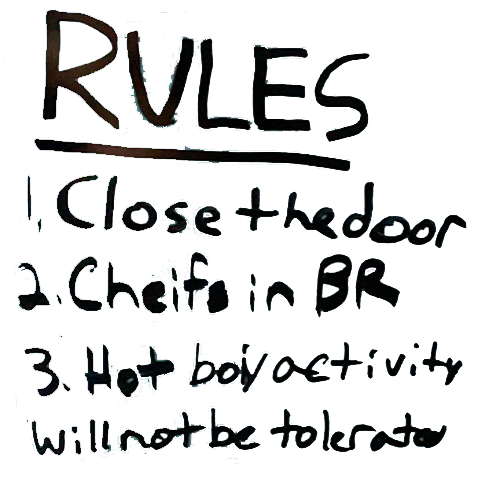 RULES
1. Close the door
2. Cheifs in BR
3. Hot boiy activity
will not be tolerated